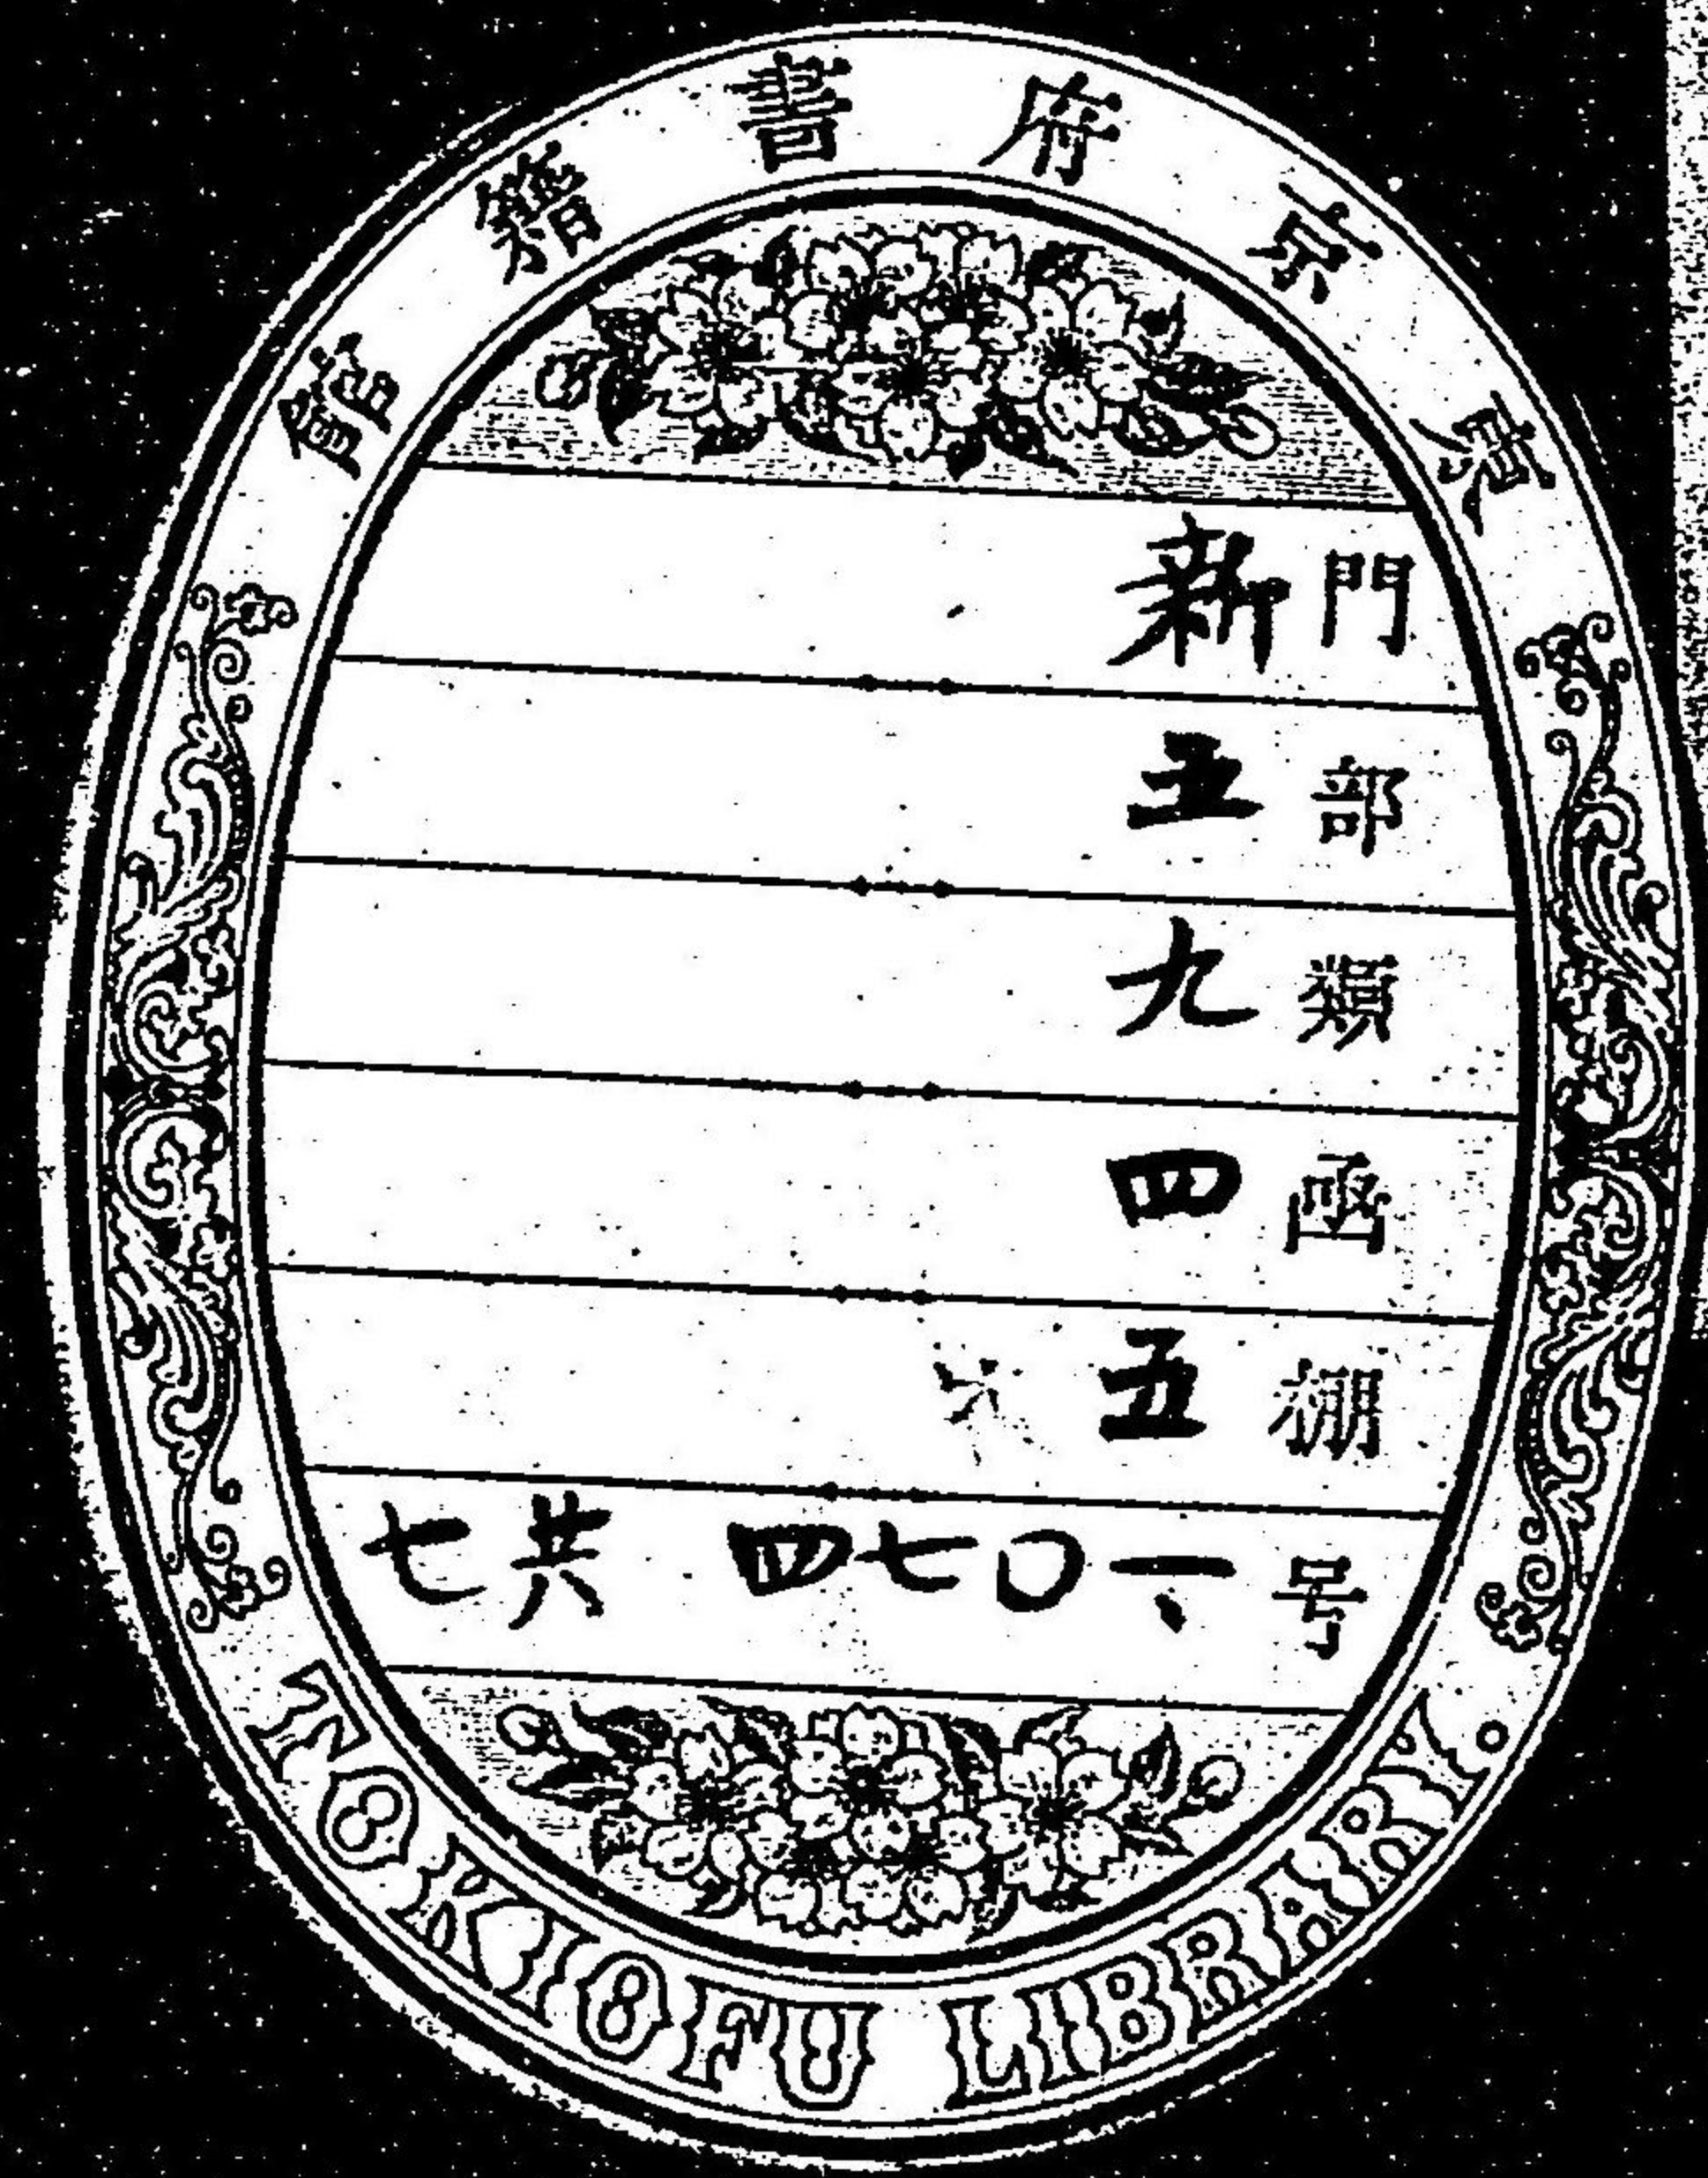 東京府書籍館
門 新
部 五
類 九
函 四
棚 五
号 一、〇七四 共七
TOKIOFU LIBRARY.